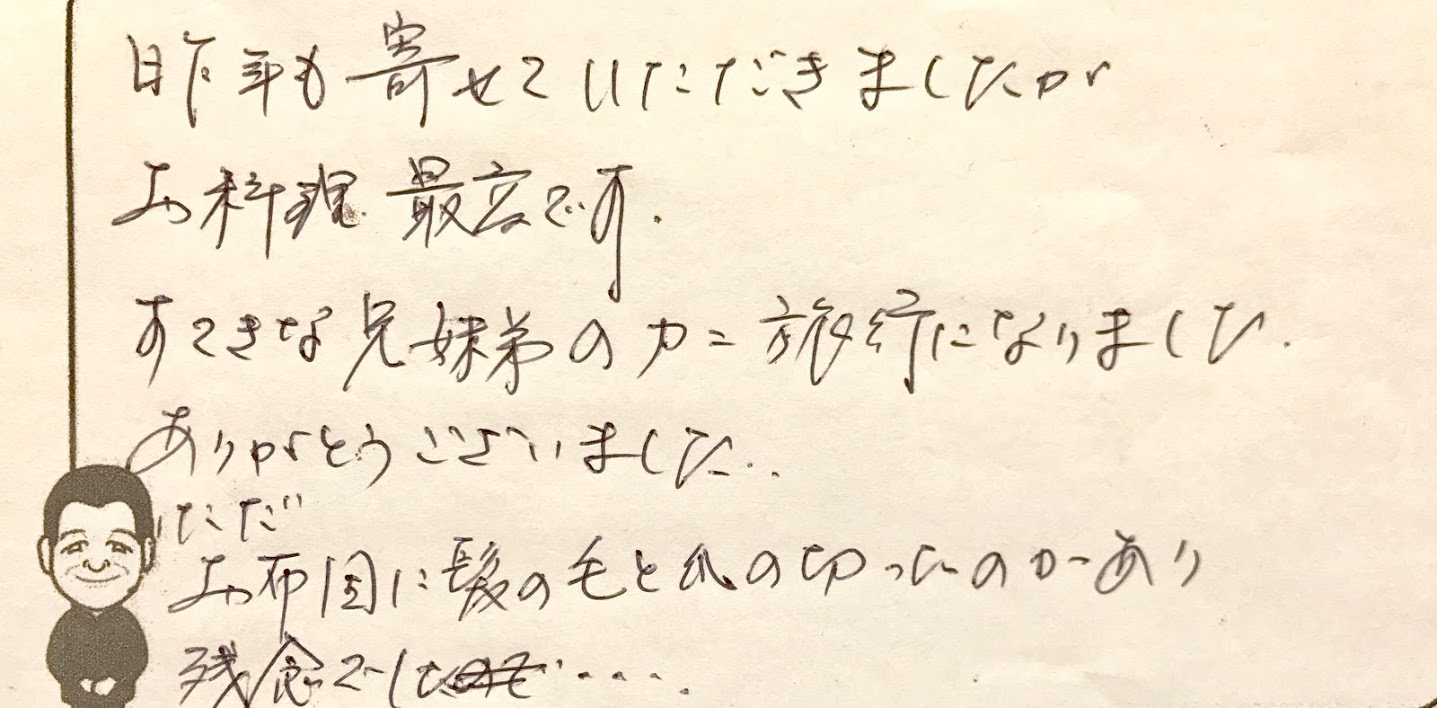 昨年も寄せていただきましたが
お料理最高です.
すてきな兄妹弟の力二旅行になりました.
ありがとうございました..
ただ
お布団に髪の毛と爪の切ったのがあり
残念でした.....